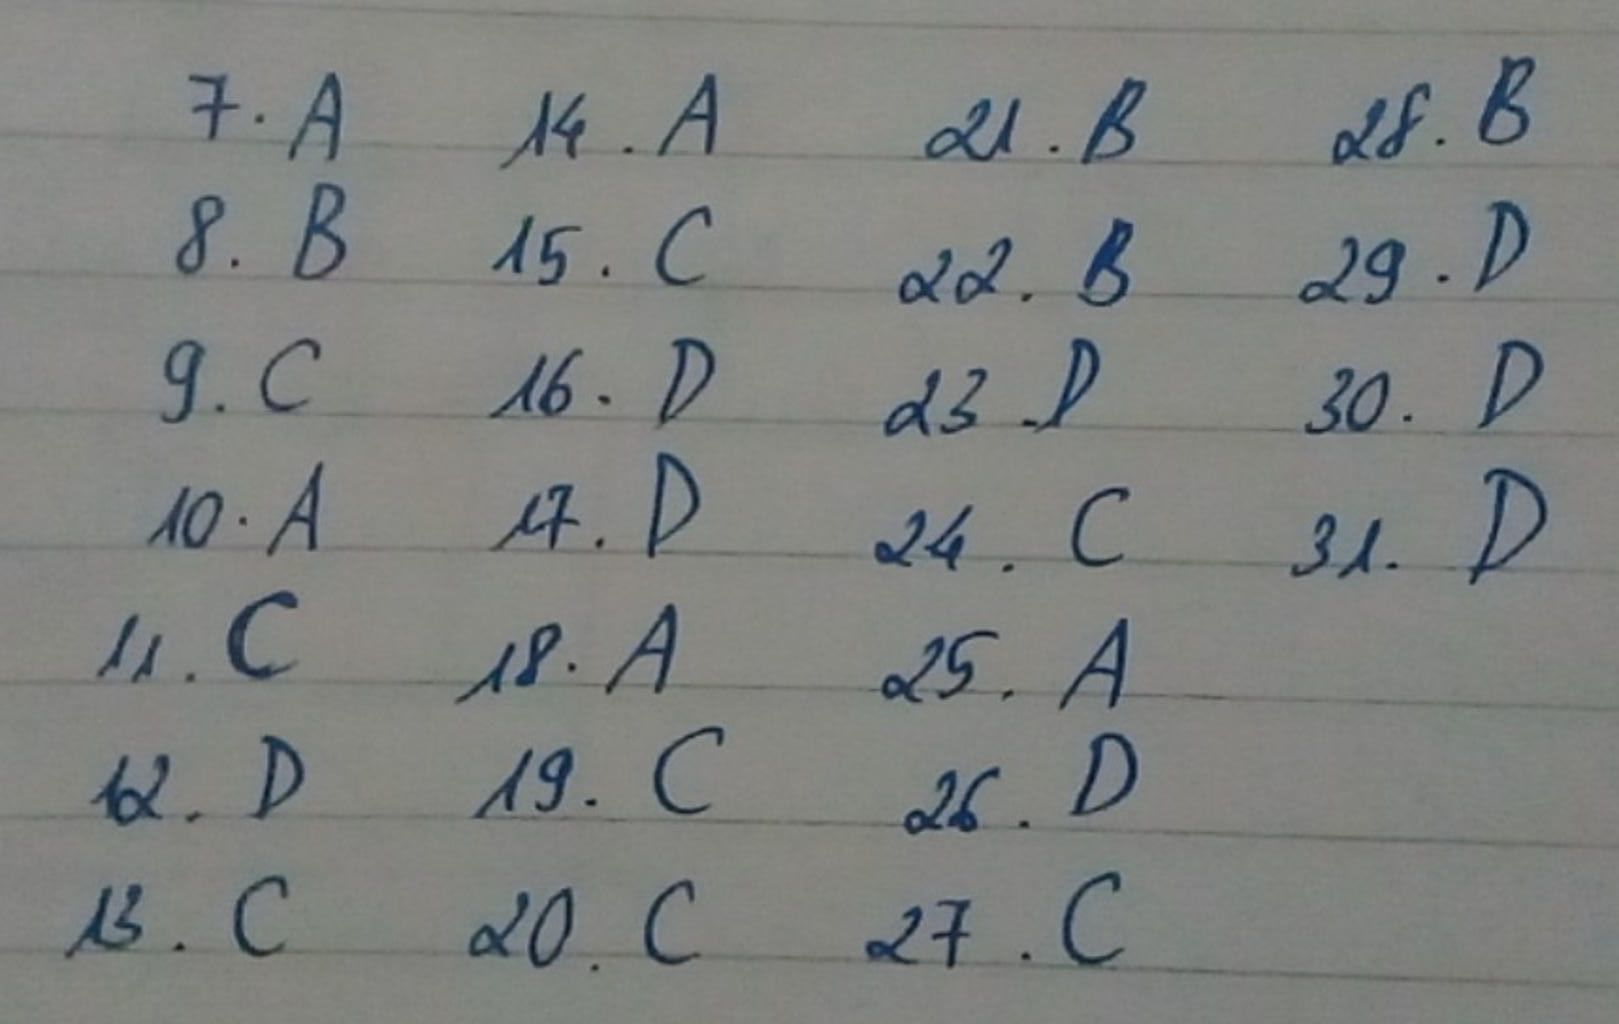 7. A 14. A 21. B 28. B
8. B 15. C 22. B 29. D
9. C 16. D 23. D 30. D
10. A 17. D 24. C 31. D
11. C 18. A 25. A
12. D 19. C 26. D
13. C 20. C 27. C